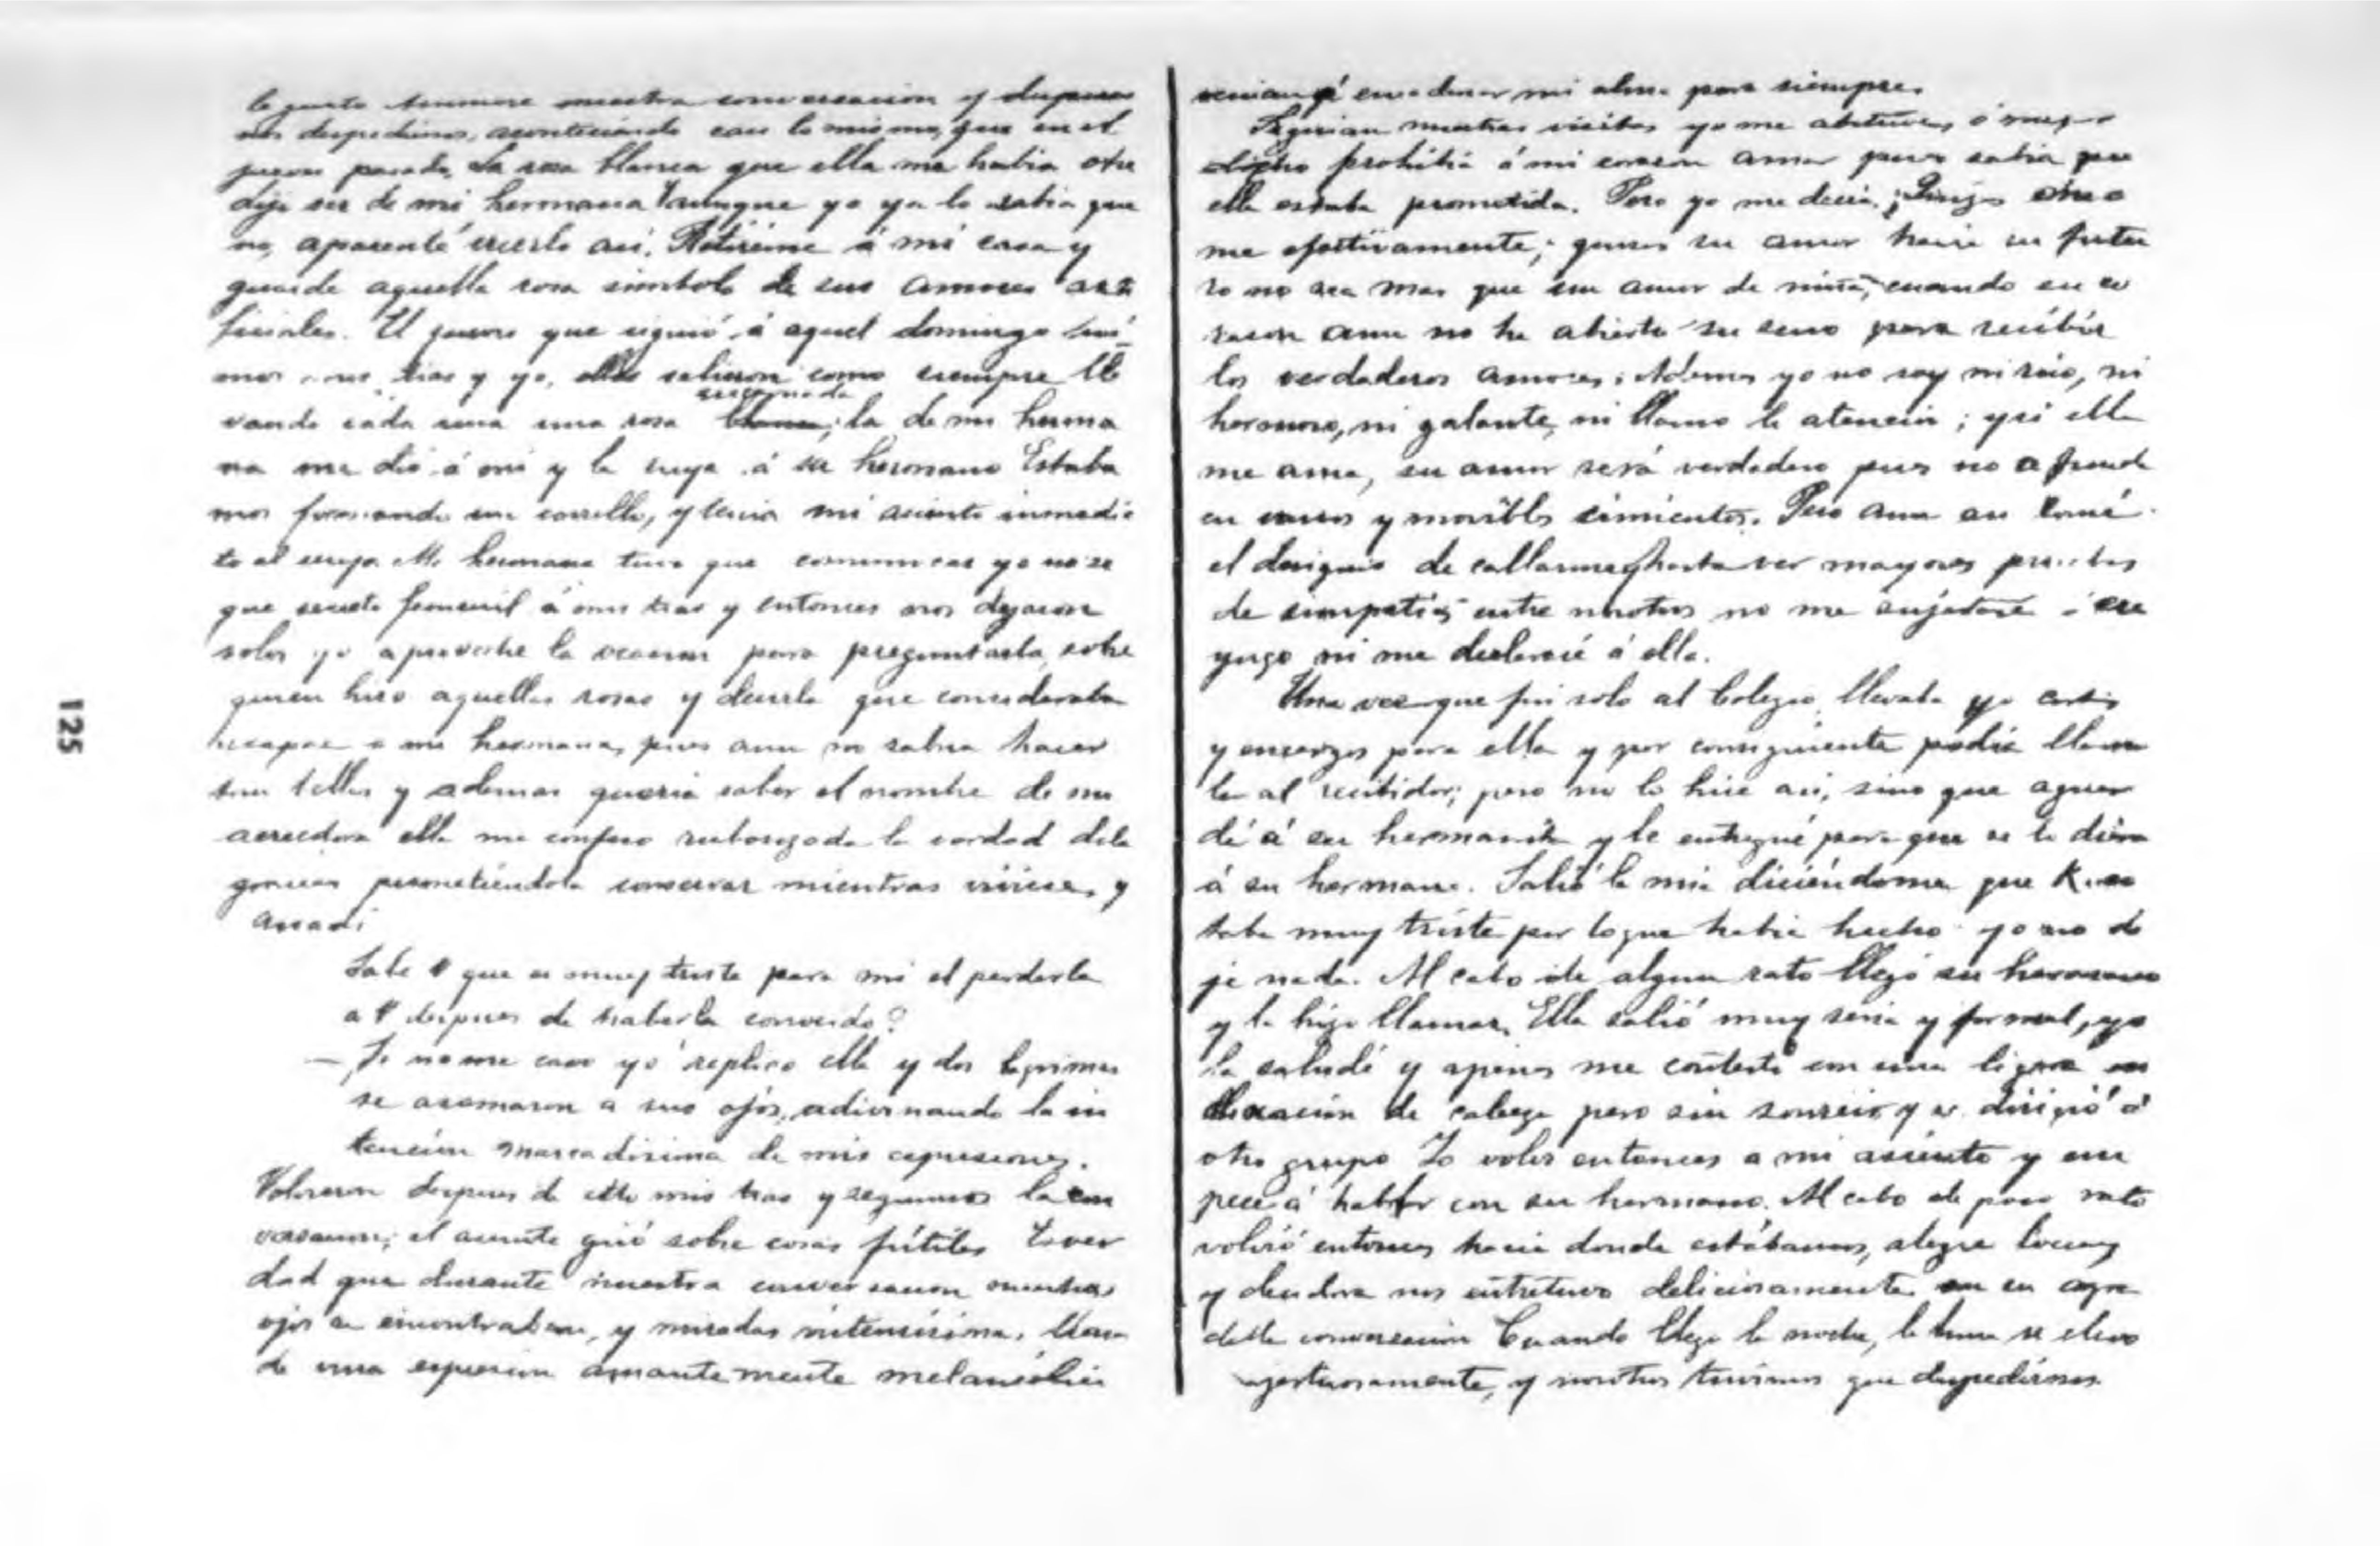 nuestra conversacion y despues
nos despedimos, aconteciendo casi lo mismo, que en el
jueves pasado. La rosa blanca que ella me habia
dije ser de mi hermana y aunque yo ya lo sabia que
no, aparenté creerlo asi. Retiréme á mi casa y
guardé aquella rosa simbolo de sus amores arti
ficiales. El jueves que siguió á aquel domingo fui
mos mis tias y yo, ellas salieron como siempre lle
encarnada
vando cada una una rosa blanca; la de mi herma
na me dió á mi y la suya á su hermano Estaba
mos formando un corrillo, y tenia mi asiento inmedia
to al suyo. Mi hermana tuvo que comunicar yo no se
que secreto femenil á mis tias y entonces nos dejaron
solos yo aproveché la ocasion para preguntarla sobre
quien hizo aquellas rosas y decirla que consideraba
incapaz a mi hermana, pues aun no sabia hacer
tan bellas y ademas queria saber el nombre de mi
acreedora ella me confesó ruborizada la verdad dila
gracias prometiéndola conservar mientras viviese, y
añadi
Sabe V que es muy triste para mi el perderla
a V despues de haberla conocido?
— Si no me caso yo replicó ella y dos lagrimas
se asomaron a sus ojos, adivinando la in
tencion marcadisima de mis expresiones.
Volvieron despues de esto mis tias y seguimos la con
versacion; el asunto giró sobre cosas fútiles Es ver
dad que durante nuestra conversacion nuestros
ojos se encontraban, y miradas intensisimas, llenas
de una expresion amantemente melancólica
venian á encadenar mi alma para siempre.
Seguian nuestras visitas yo me abstuve, ó mejor
dicho prohibia á mi corazon amar pues sabia que
ella estaba prometida. Pero yo me decia. ¡Quizas
me efectivamente; quizas su amor hacia su futu
ro no sea mas que un amor de niña, cuando su co
razon aun no ha abierto su seno para recibir
los verdaderos amores; Ademas yo no soy ni rico, ni
hermoso, ni galante, ni llamo la atencion; y si ella
me ama, su amor será verdadero pues no se funda
en vanos y movibles cimientos. Pero aun asi tomé
el designio de callarme y hasta ver mayores pruebas
de simpatias entre nosotros no me sujetaré á su
yugo ni me declararé á ella.
Una vez que fui solo al Colegio, llevaba yo cartas
y encargos para ella y por consiguiente podia llamar
la al recibidor; pero no lo hice asi, sino que aguar
dé á su hermanita y le entregué para que se lo diera
á su hermana. Salió la mia diciéndome que K. es
taba muy triste por lo que habia hecho yo no di
je nada. Al cabo de algun rato llegó su hermano
y la hizo llamar. Ella salió muy seria y formal, yo
la saludé y apenas me contestó con una ligera in
clinación de cabeza pero sin sonreir y se dirigió á
otro grupo Yo volvi entonces a mi asiento y em
pecé á hablar con su hermano. Al cabo de poco rato
volvió entonces hacia donde estábamos, alegre locuaz
y nos entretuvo deliciosamente en su agra
dable conversacion Cuando llegó la noche, la luna se elevó
majestuosamente, y nosotros tuvimos que despedirnos.
125